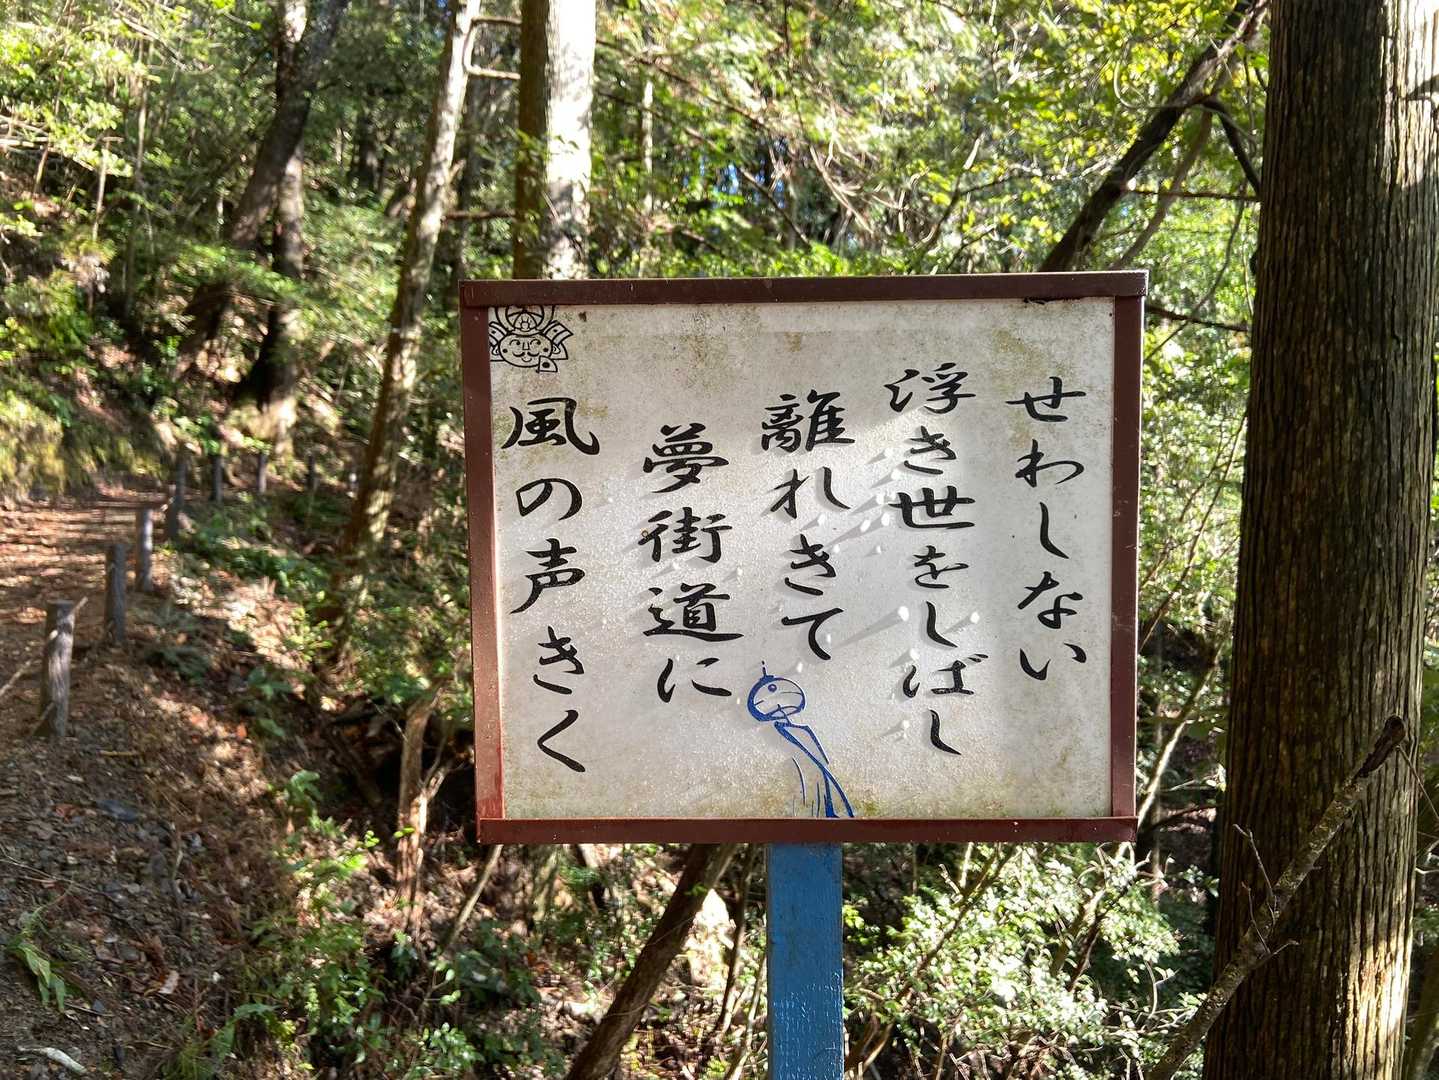 せわしない
浮き世をしばし
離れきて
夢街道に
風の声きく